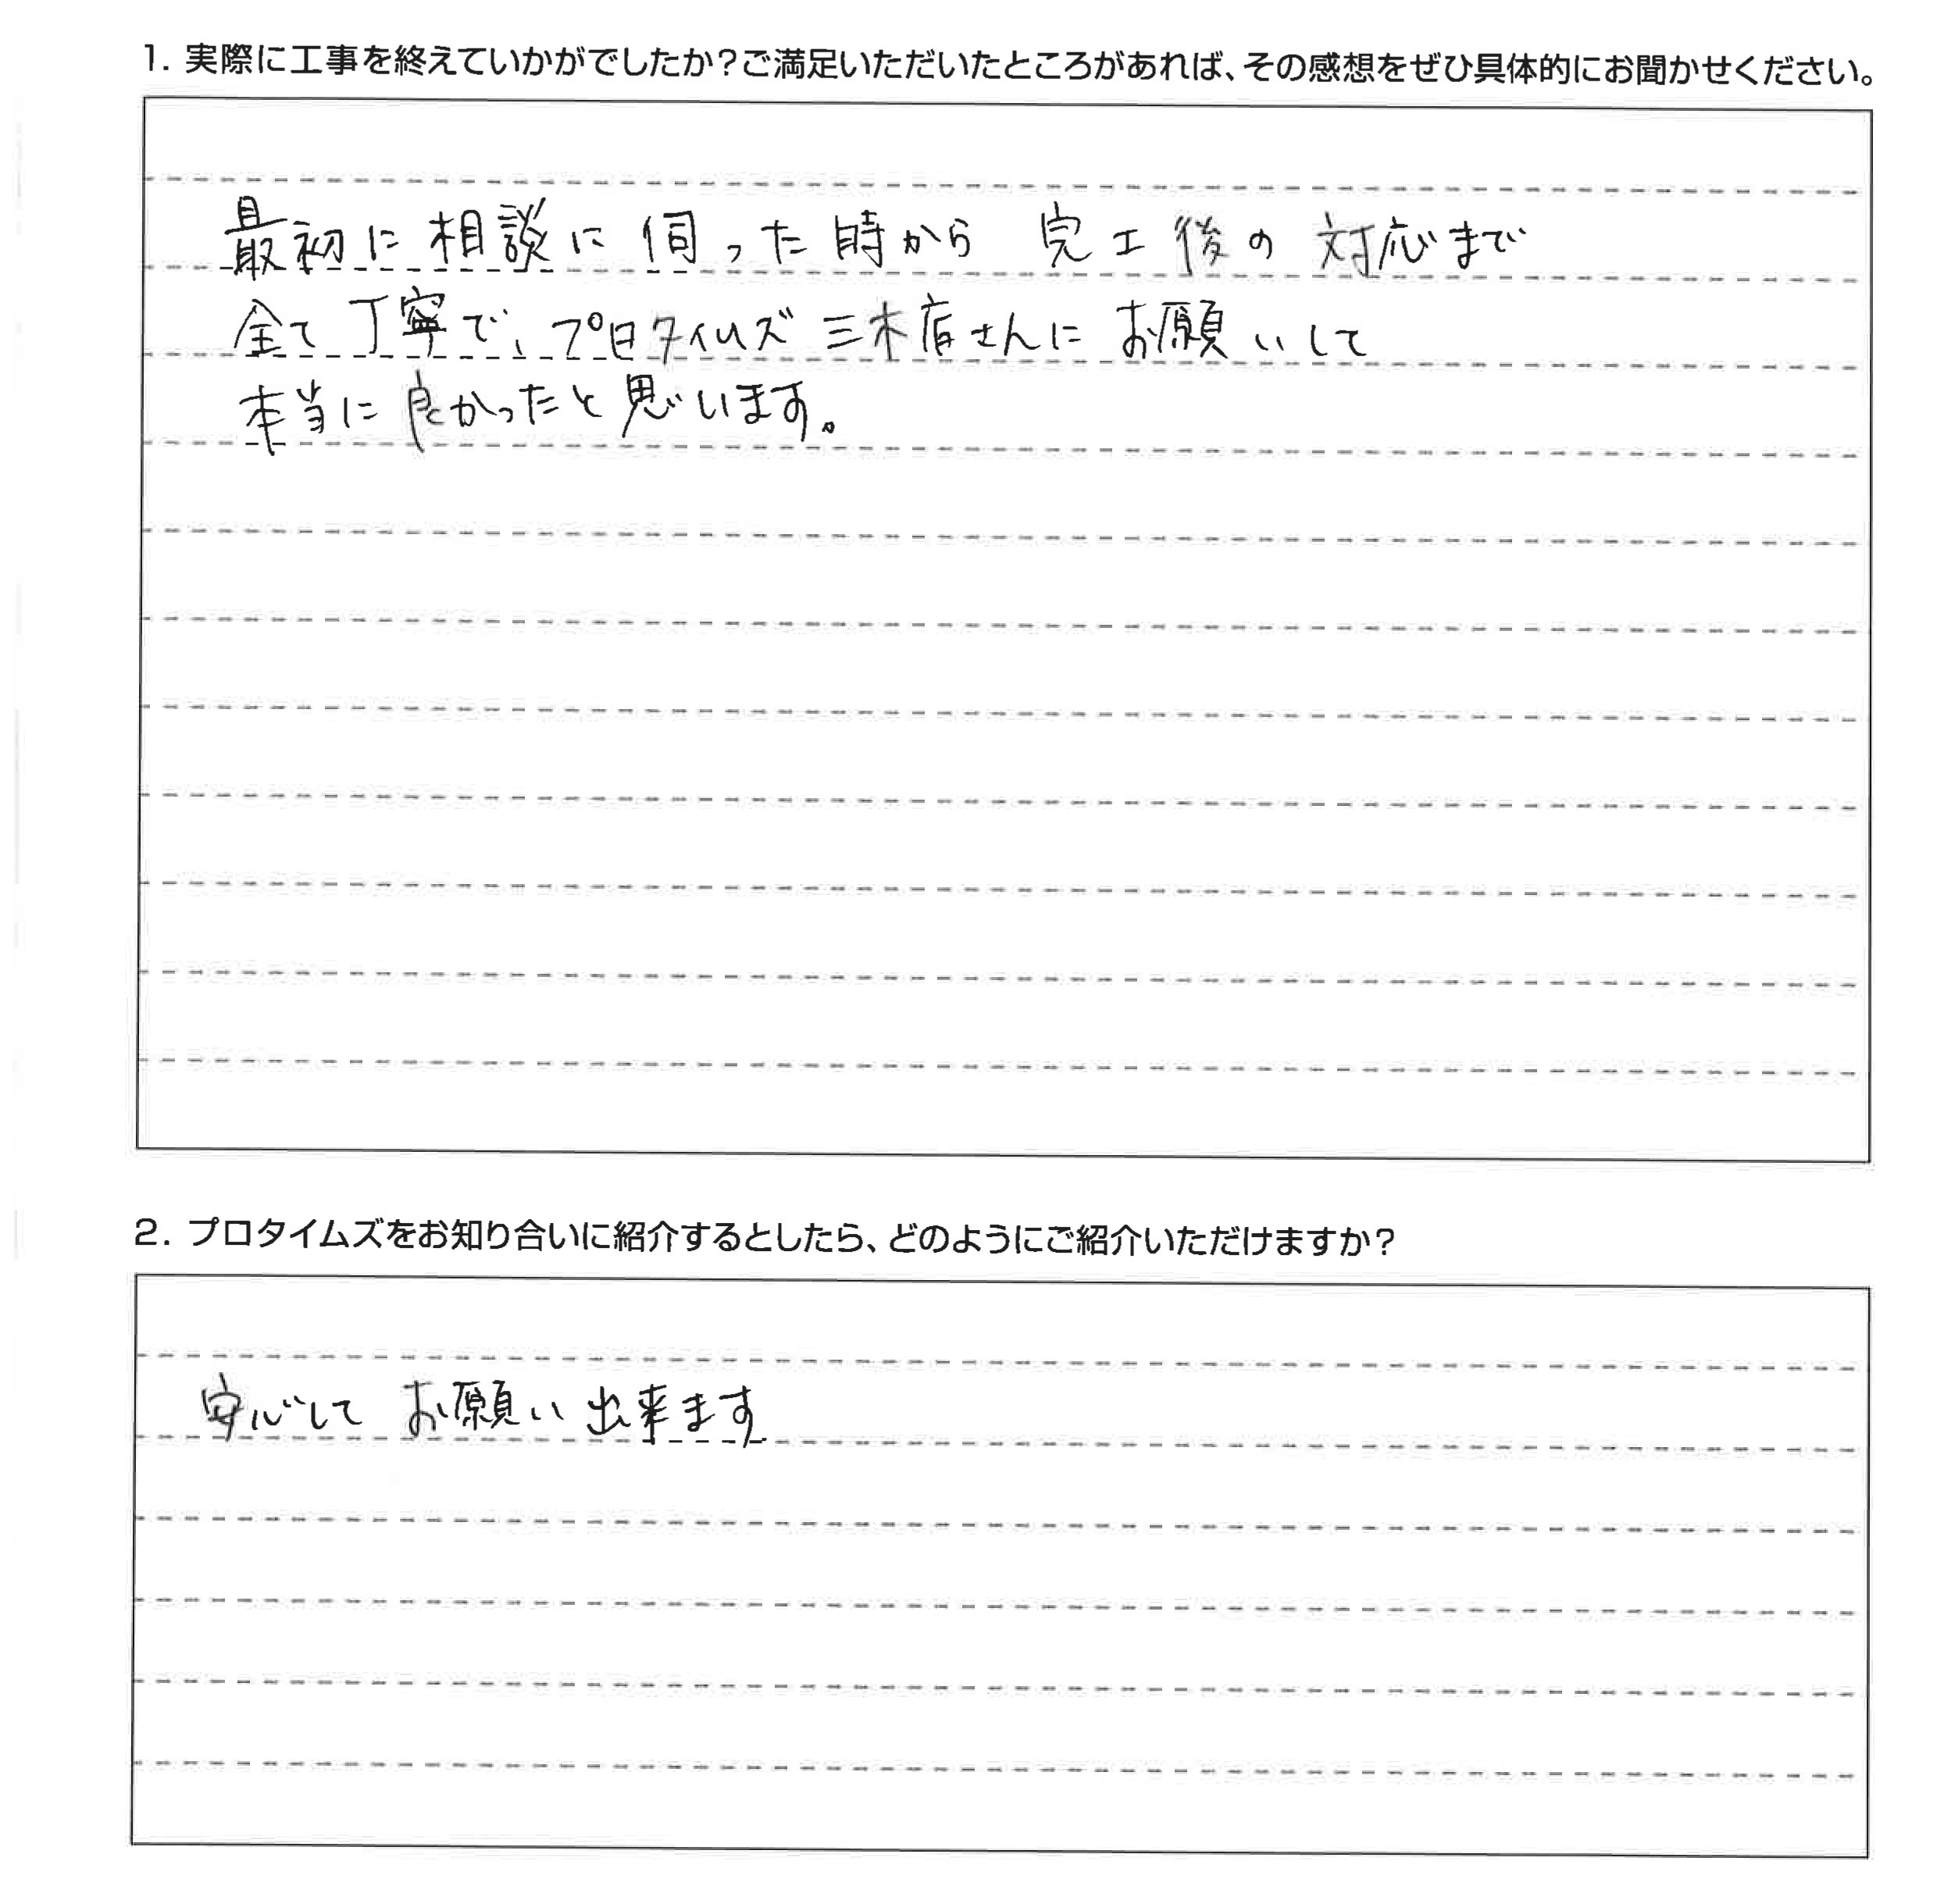 1. 実際に工事を終えていかがでしたか？ご満足いただいたところがあれば、その感想をぜひ具体的にお聞かせください。
最初に相談に伺った時から 完工後の対応まで
全て丁寧で、プロタイムズ三木店さんにお願いして
本当に良かったと思います。
2. プロタイムズをお知り合いに紹介するとしたら、どのようにご紹介いただけますか？
安心して お願い出来ます